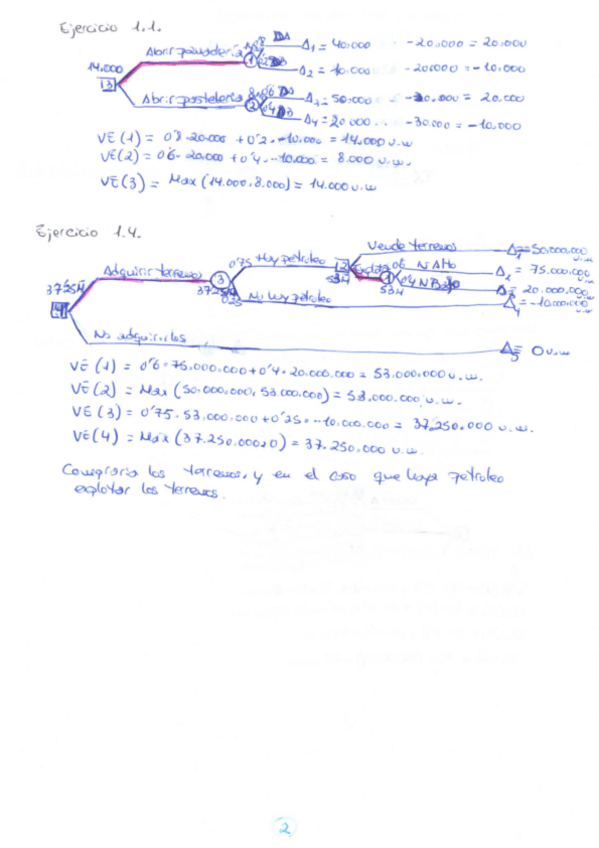 Ejercicio 1.1.
Abrir panadería 1 0'8 DA Δ1 = 40.000 - 20.000 = 20.000
14.000
0'2 DB Δ2 = 10.000 - 20.000 = -10.000
3
Abrir pastelería 2 0'6 DA Δ3 = 50.000 - 30.000 = 20.000
0'4 DB Δ4 = 20.000 - 30.000 = -10.000
VE (1) = 0'8 · 20.000 + 0'2 · -10.000 = 14.000 u.m
VE (2) = 0'6 · 20.000 + 0'4 · -10.000 = 8.000 u.m.
VE (3) = Max (14.000, 8.000) = 14.000 u.m
Ejercicio 1.4.
Vende terrenos Δ1 = 50.000.000 u.m
Adquirir terrenos 3 0'75 Hay petroleo 2 0'6 N Alto Δ2 = 75.000.000 u.m
37'25M 37'25M 53M 1 53M 0'4 N Bajo Δ3 = 20.000.000 u.m
4 0'25 No hay petroleo Δ4 = -10.000.000 u.m
No adquirirlos Δ5 0 u.m
VE (1) = 0'6 · 75.000.000 + 0'4 · 20.000.000 = 53.000.000 u.m.
VE (2) = Max (50.000.000, 53.000.000) = 53.000.000 u.m.
VE (3) = 0'75 · 53.000.000 + 0'25 · -10.000.000 = 37.250.000 u.m.
VE (4) = Max (37.250.000, 0) = 37.250.000 u.m.
Compraría los terrenos, y en el caso que haya petroleo
explotar los terrenos.
2